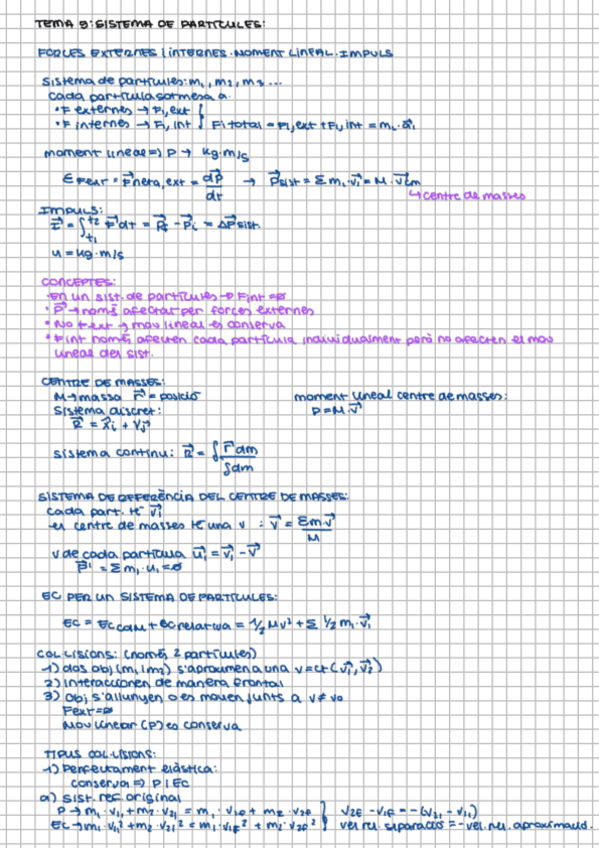 TEMA 9: SISTEMA DE PARTÍCULES:
FORCES EXTERNES I INTERNES. MOMENT LINEAL. IMPULS
Sistema de partícules: m1, m2, m3 ...
cada partícula sotmesa a:
• F externes → Fi,ext
• F internes → Fi,int } Fi total = Fi,ext + Fi,int = mi · ai
moment lineal => P → kg·m/s
ΣFext = Fneta,ext = dP/dt → Psist = Σ mi·vi = M · vcm
↳ centre de masses
IMPULS:
I = ∫t1 t2 F dt = Pf - Pi = ΔPsist
u = kg·m/s
CONCEPTES:
• En un sist. de partícules → Fint = 0
• P → només afectar per forces externes
• No Fext → mov lineal es conserva
• Fint només afecten cada partícula individualment però no afecten el mov
lineal del sist.
CENTRE DE MASSES:
M → massa r = posició
moment lineal centre de masses:
Sistema discret:
P = M·V
R = Xi + Yj
sistema continu: R = ∫r dm / ∫dm
SISTEMA DE REFERÈNCIA DEL CENTRE DE MASSES:
cada part. té vi
el centre de masses té una v : V = Σm·v / M
v de cada partícula ui = vi - V
P' = Σmi·ui = 0
EC PER UN SISTEMA DE PARTÍCULES:
EC = EC CdM + EC relativa = 1/2 Mv² + Σ 1/2 mi·vi
COL·LISIONS: (només 2 partícules)
1) dos obj (m1 i m2) s'aproximen a una v = ct (v1, v2)
2) Interaccionen de manera frontal
3) Obj s'allunyen o es mouen junts a v ≠ v0
Fext = 0
Mov linear (P) es conserva
TIPUS COL·LISIONS:
1) Perfectament elàstica:
conserva => P i Ec
a) Sist. ref. original
P → m1·v1i + m2·v2i = m1·v1f + m2·v2f } v2f - v1f = -(v2i - v1i)
EC → m1·v1i² + m2·v2i² = m1·v1f² + m2·v2f² } vel rel. separació = -vel. rel. aproximació.